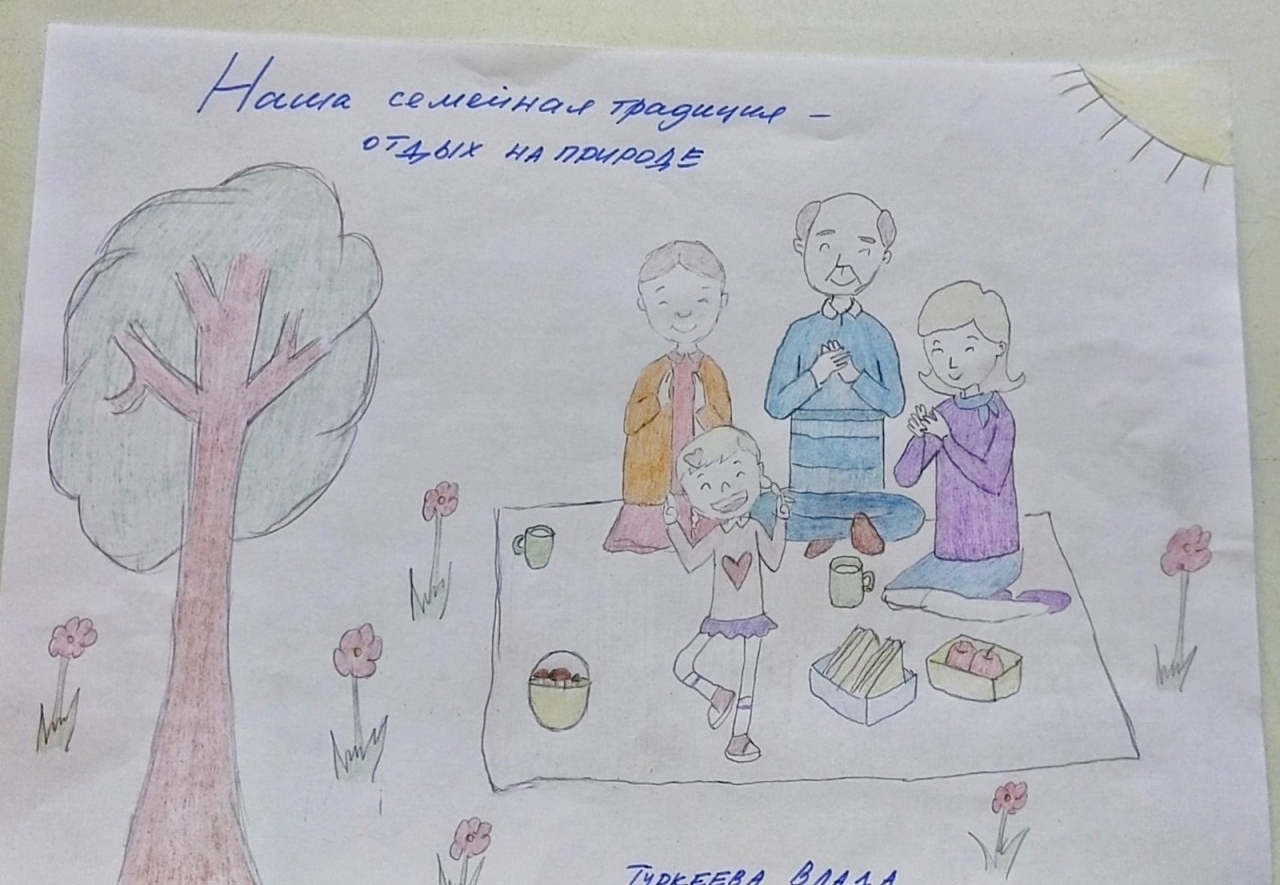 Наша семейная традиция –
отдых на природе
Туркеева Влада